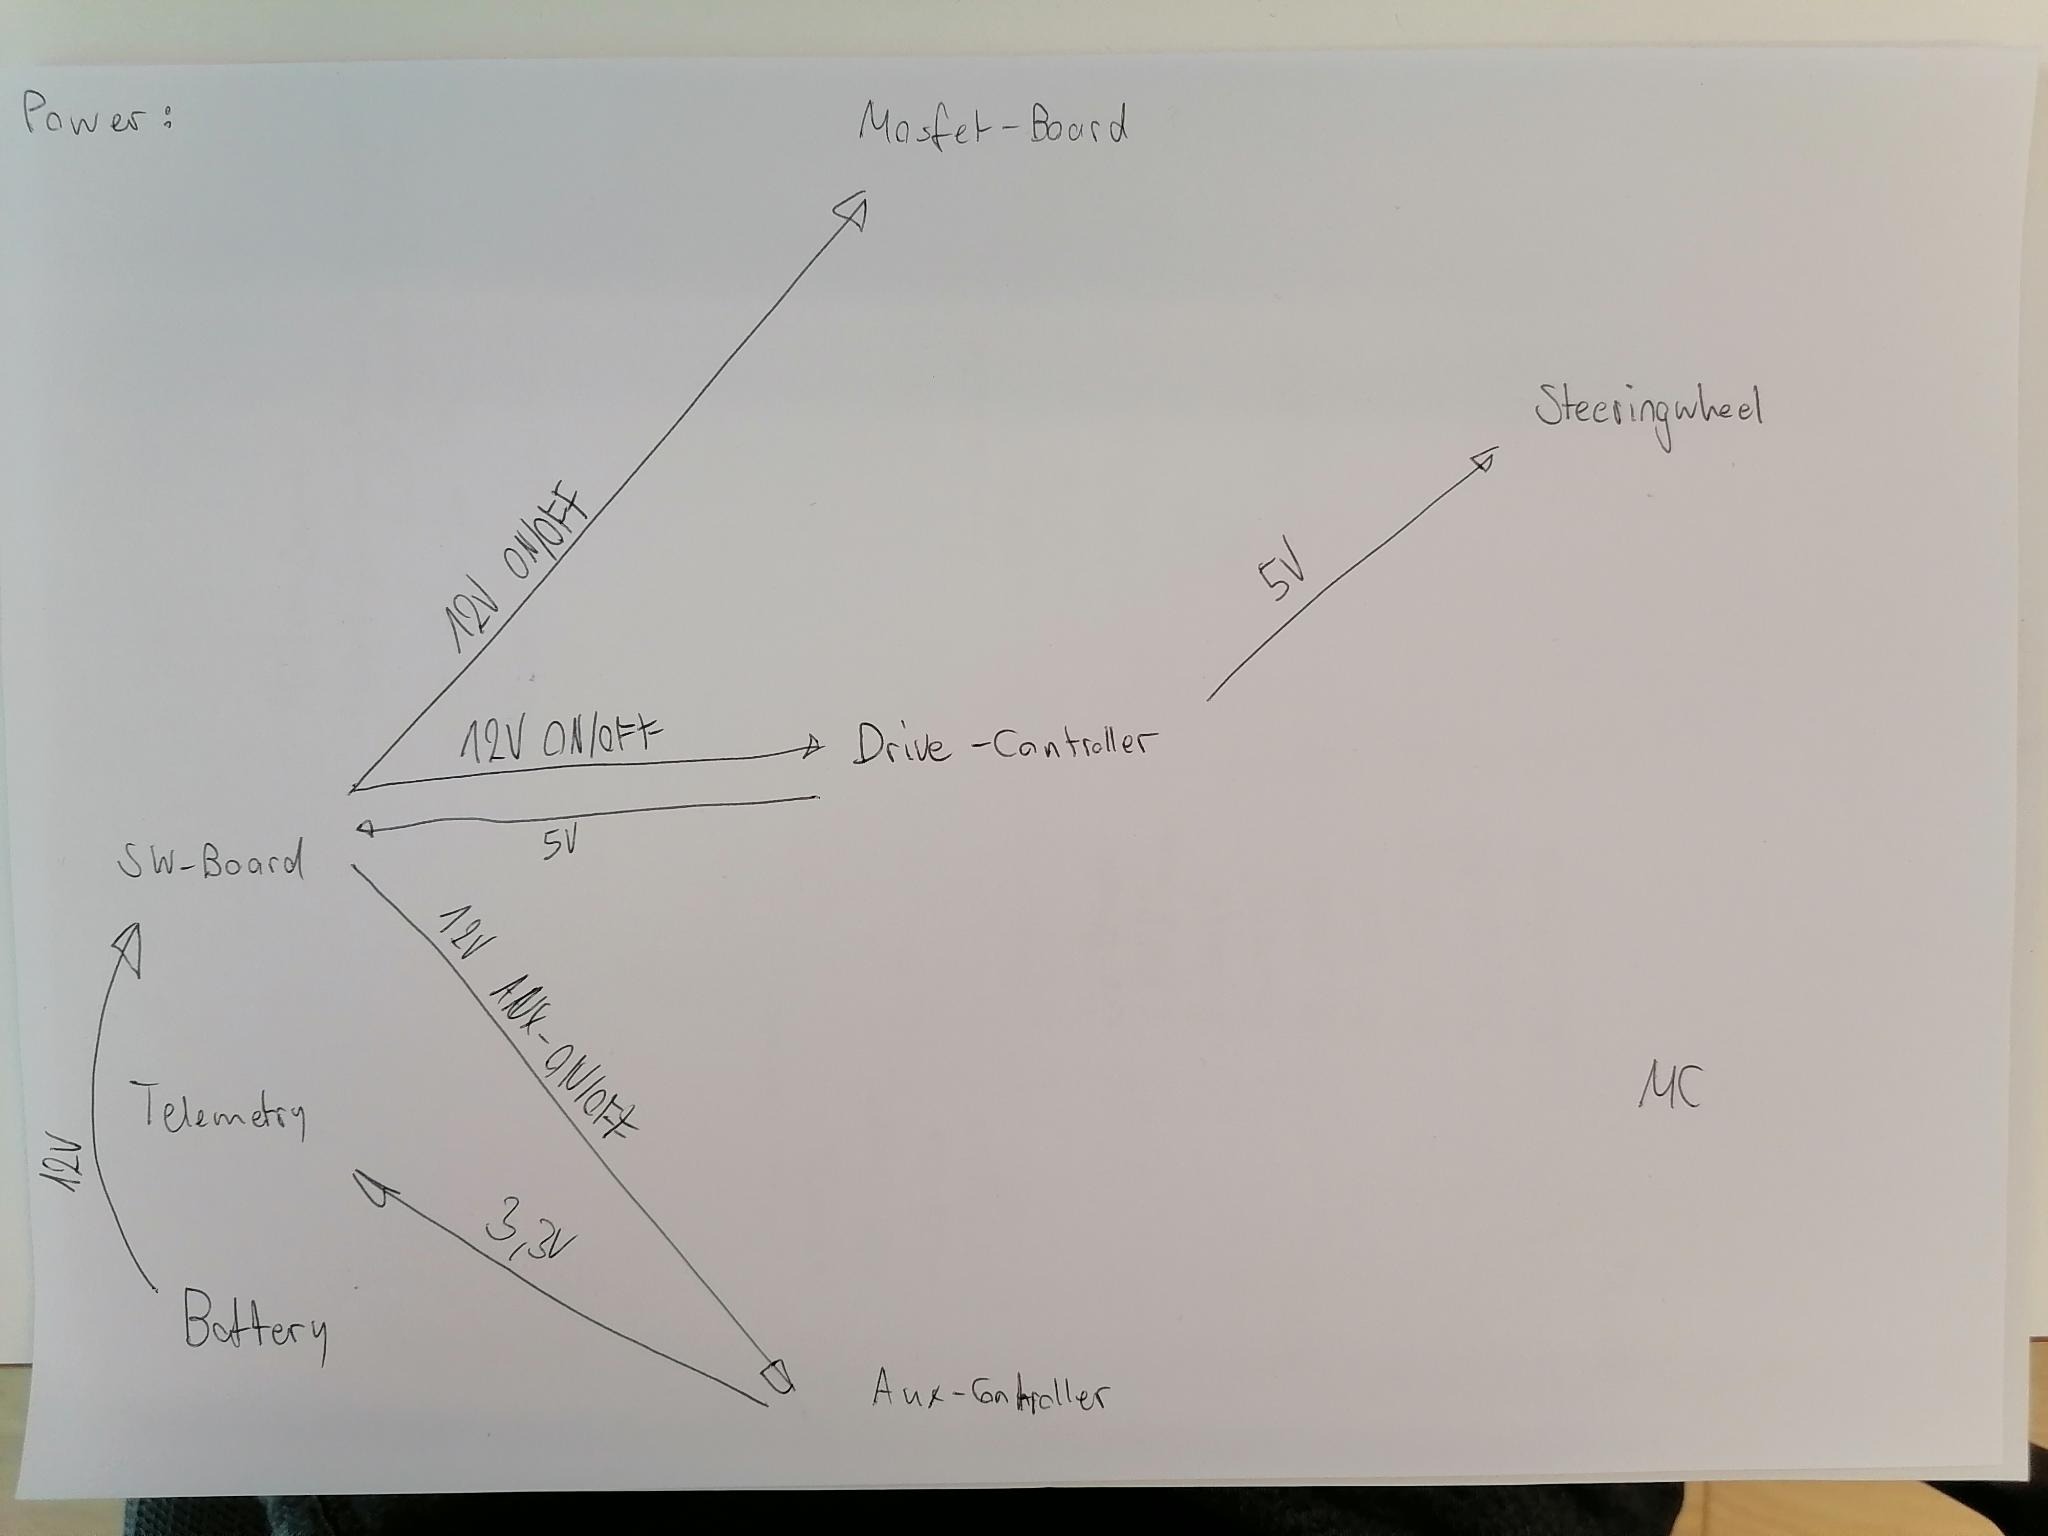 Power:
Mosfet-Board
Steeringwheel
12V ON/OFF
5V
12V ON/OFF
Drive-Controller
5V
SW-Board
12V AUX-ON/OFF
Telemetry
MC
12V
3,3V
Battery
Aux-Controller